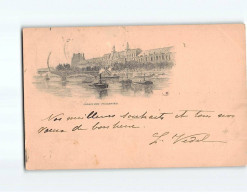 Nos meilleurs souhaits et tous nos
vœux de bonheur.
L. Vidal